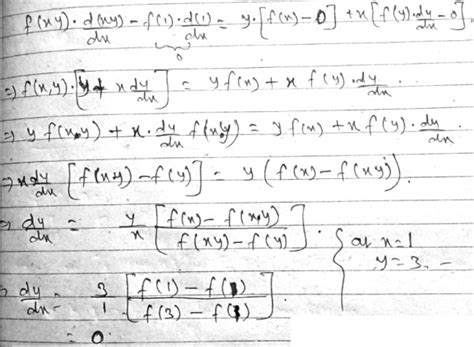 f(xy) · d(xy)/dx − f(1) · d(1)/dx = y · [f(x) − 0] + x [f(y) · dy/dx − 0]
0
⇒ f(x,y) · [y + x dy/dx] = y f(x) + x f(y) · dy/dx .
⇒ y f(x,y) + x · dy/dx f(x,y) = y f(x) + x f(y) · dy/dx .
⇒ x dy/dx [f(xy) − f(y)] = y (f(x) − f(xy)) .
⇒ dy/dx = y/x [f(x) − f(x,y) / f(xy) − f(y)] .
at x=1
y=3. −
⇒ dy/dx = 3/1 [f(1) − f(1) / f(3) − f(1)]
= 0